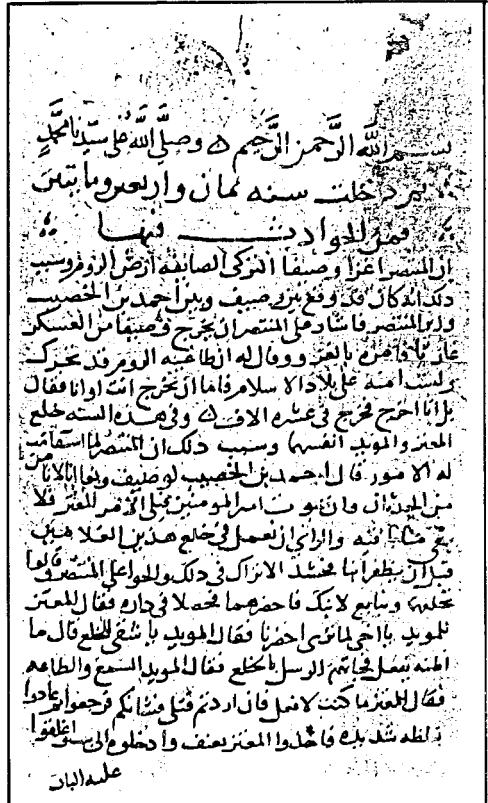 بسم الله الرحمن الرحيم ۞ وصلى الله على سيدنا محمد
ثم دخلت سنه ثمان واربعين ومايتين
فمن الحوادث فيها
ان المنتصر اغزا وصيفا التركى الصائفه ارض الروم وسبب
ذلك انه كان قد وقع بين وصيف وبين احمد بن الخصيب
وزير المنتصر فاشار على المنتصر ان يخرج وصيفا من العسكر
غازيا وامره بالغزو وقال له ان طاغيه الروم قد تحرك
ولست امنه على بلاد الاسلام فاما ان تخرج انت او انا فقال
بل انا اخرج فخرج فى عشره الاف ۞ وفى هذه السنه خلع
المعتز والمويد انفسهما وسبب ذلك ان المنتصر لما استقامت
له الامور قال احمد بن الخصيب لوصيف وبغا انا لا نامن
من الحدثان وان يموت امير المومنين فيلى الامر المعتز فلا
يبقى منا فيه والراى ان نعمل فى خلع هذين الغلامين
قبل ان يظفرا بنا فجد الاتراك فى ذلك والحوا على المنتصر وقالوا
نخلهما ونبايع لابنك فاحضرهما فجعلا فى داره فقال المعتز
للمويد يا اخى لما ترى احضرنا فقال المويد يا شقى للخلع قال ما
اظنه يفعل فجاتهم الرسل بالخلع فقال المويد السمع والطاعه
فقال المعتز ما كنت لافعل فان اردتم قتلى فشانكم فرجعوا ثم عادوا
بغلظه شديده فاخذوا المعتز بعنف وادخلوه الى بيت واغلقوا
عليه الباب